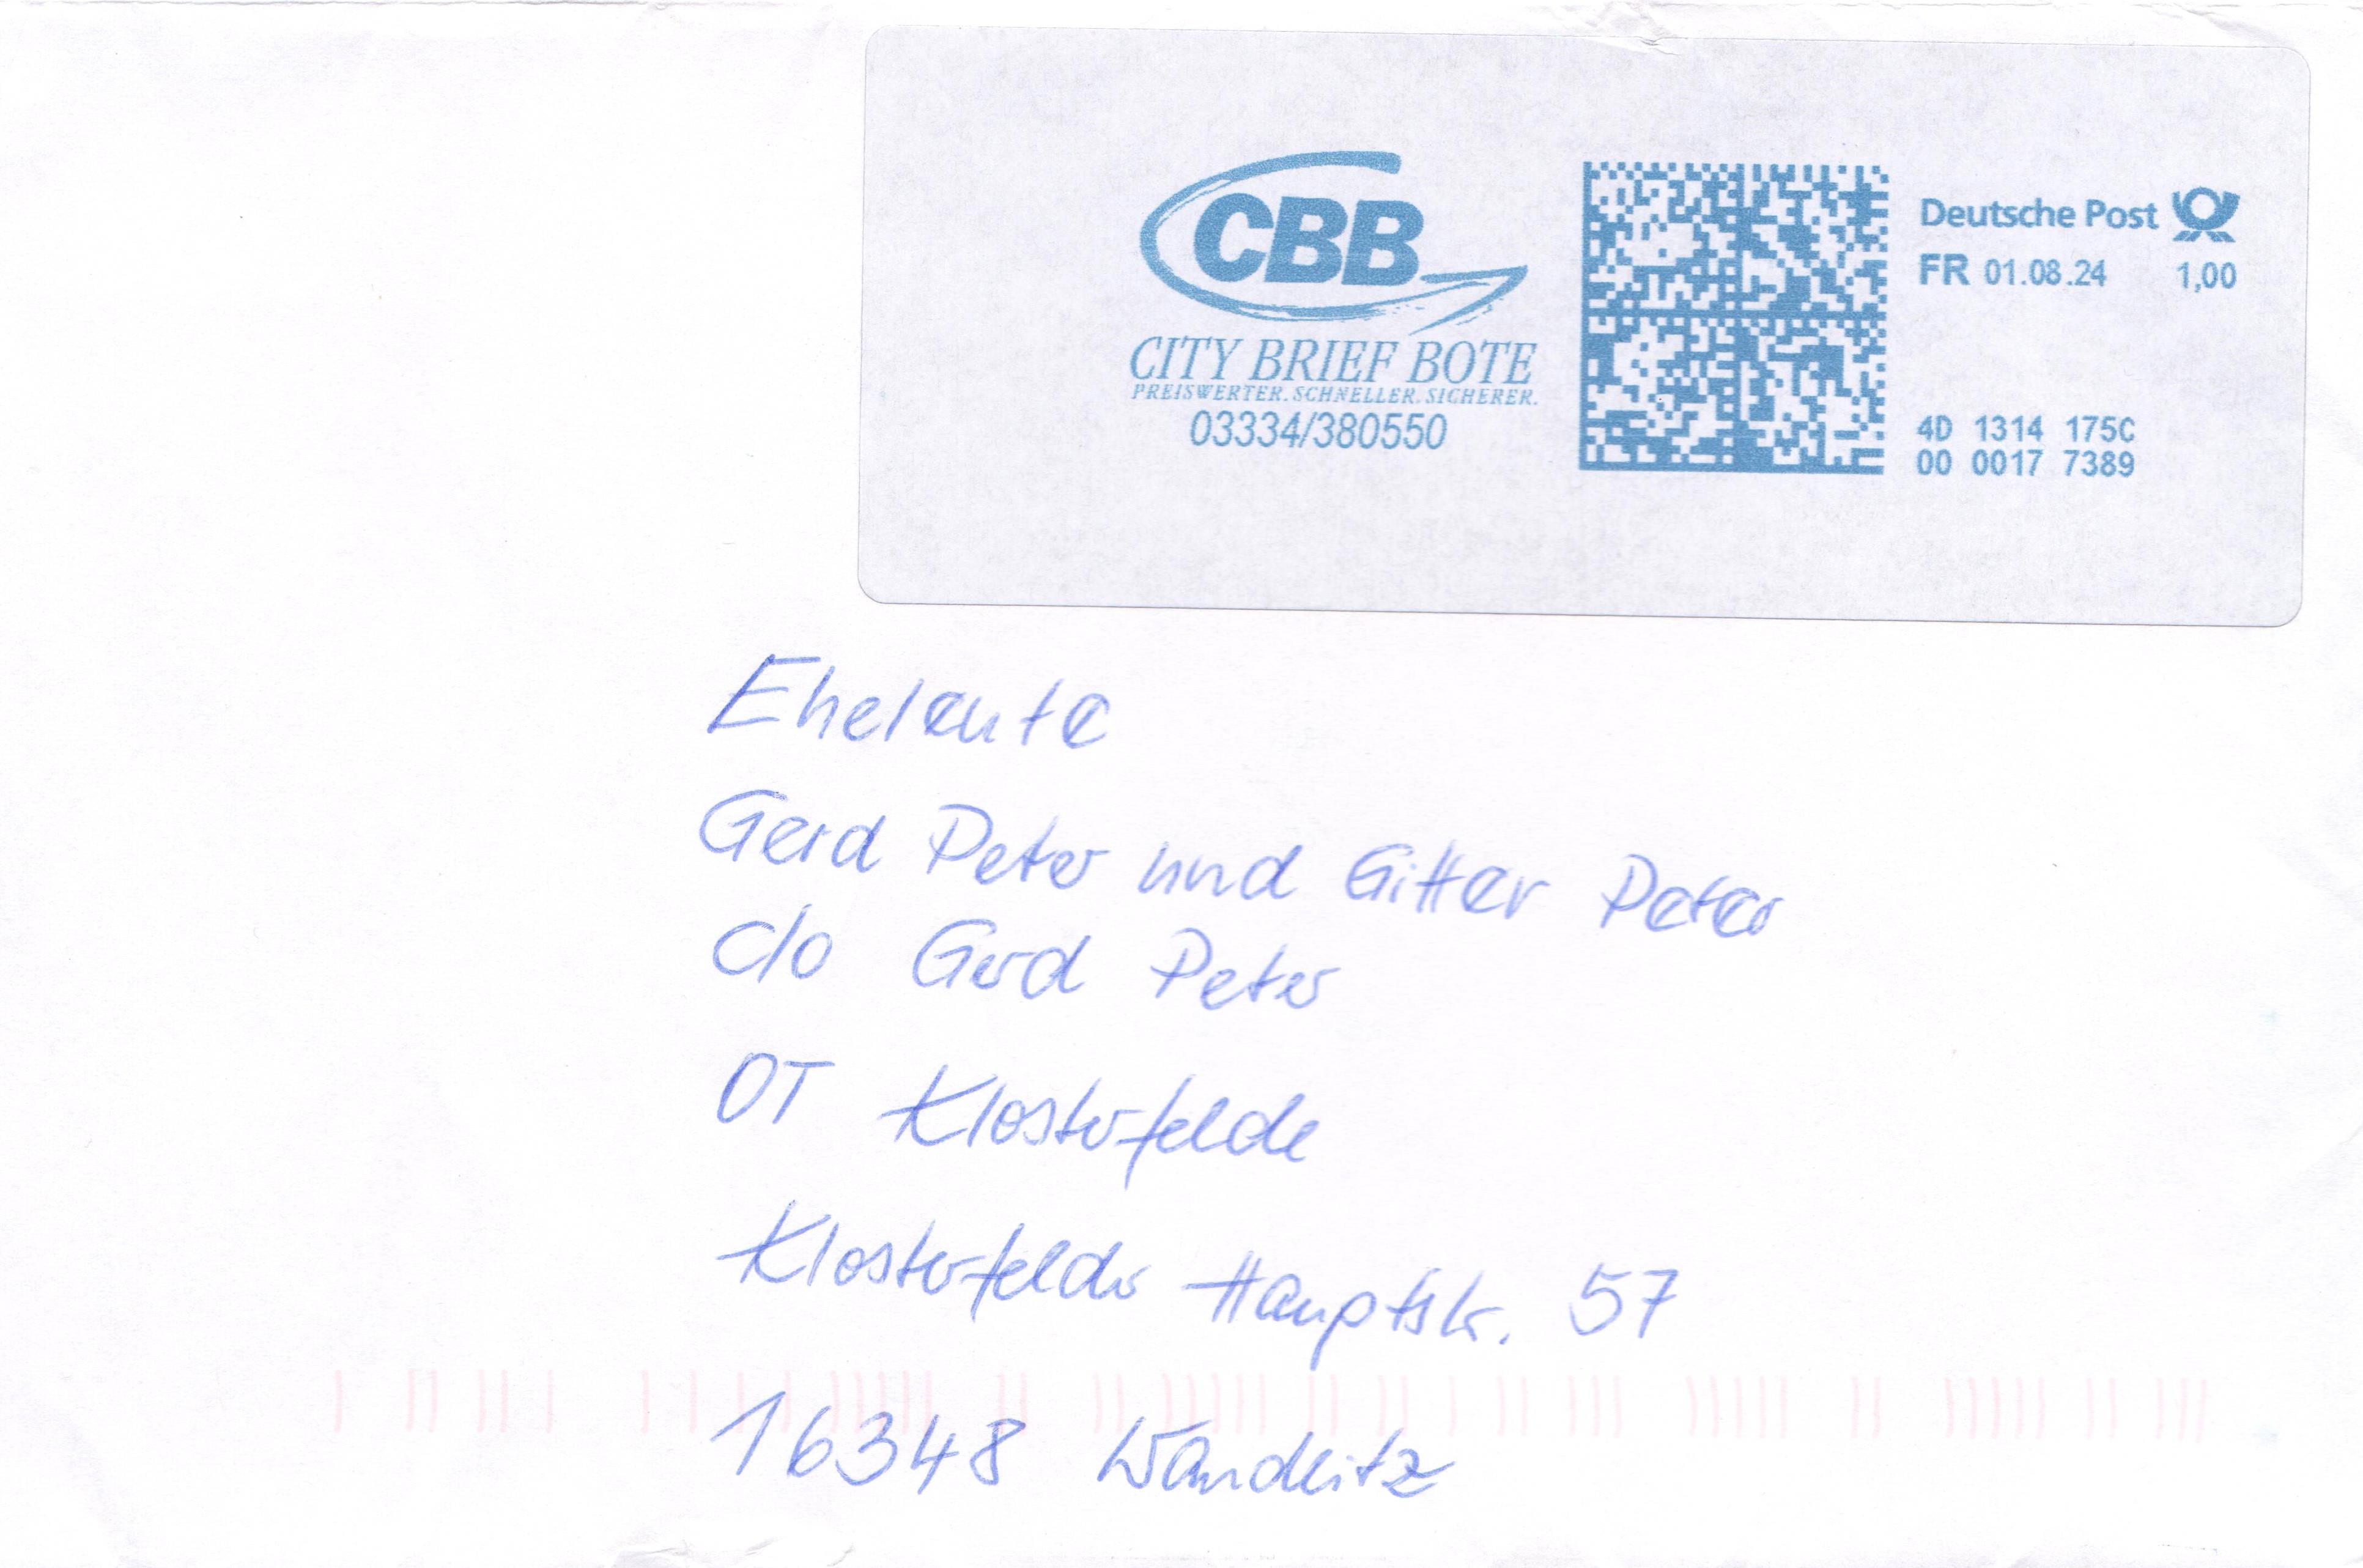 CBB
CITY BRIEF BOTE
PREISWERTER. SCHNELLER. SICHERER.
03334/380550
Deutsche Post
FR 01.08.24 1,00
4D 1314 175C
00 0017 7389
Eheleute
Gerd Peter und Gitter Peter
c/o Gerd Peter
OT Klosterfelde
Klosterfelder Hauptstr. 57
16348 Wandlitz